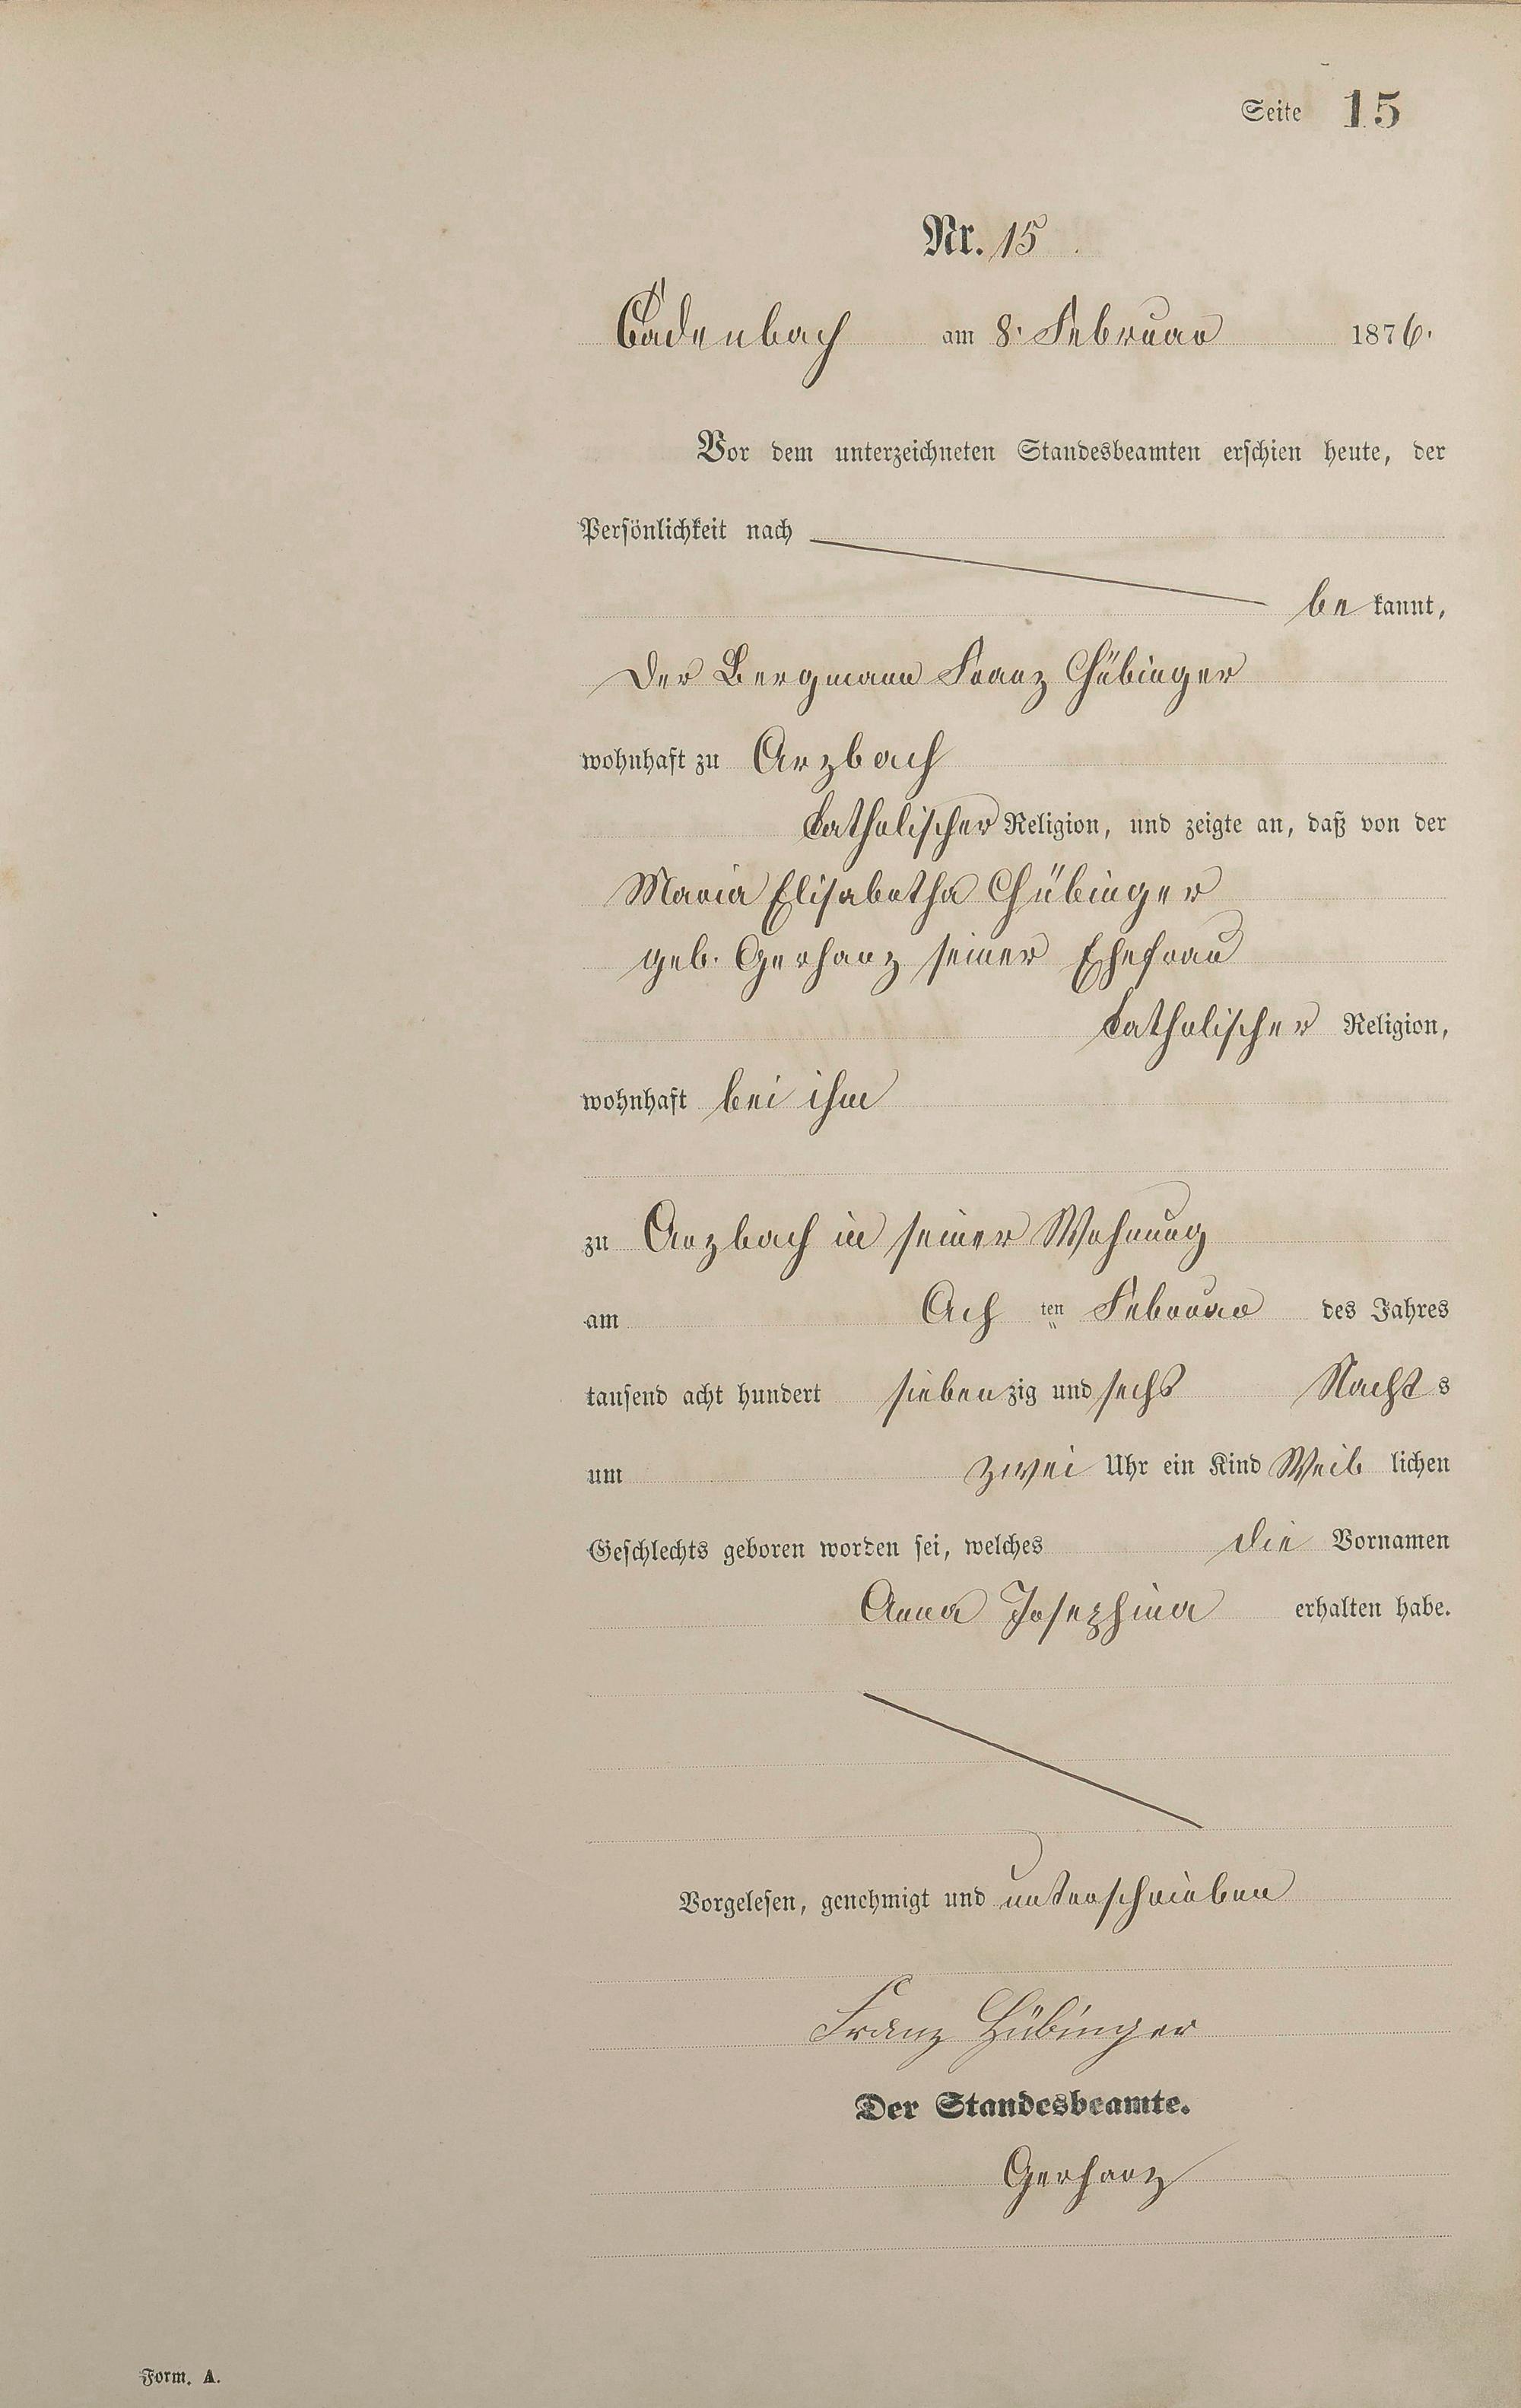 Seite 15
Nr. 15.
Cadenbach am 8. Februar 1876.
Vor dem unterzeichneten Standesbeamten erschien heute, der
Persönlichkeit nach
be kannt,
Der Bergmann Franz Hübinger
wohnhaft zu Arzbach
katholischer Religion, und zeigte an, daß von der
Maria Elisabetha Hübinger
geb. Gerharz seiner Ehefrau
katholischer Religion,
wohnhaft bei ihm
zu Arzbach in seiner Wohnung
am Ach ten Februar des Jahres
tausend acht hundert sieben zig und sechs Nacht s
um zwei Uhr ein Kind Weib lichen
Geschlechts geboren worden sei, welches die Vornamen
Anna Josephina erhalten habe.
Vorgelesen, genehmigt und unterschrieben
Franz Hübinger
Der Standesbeamte.
Gerharz
Form. A.